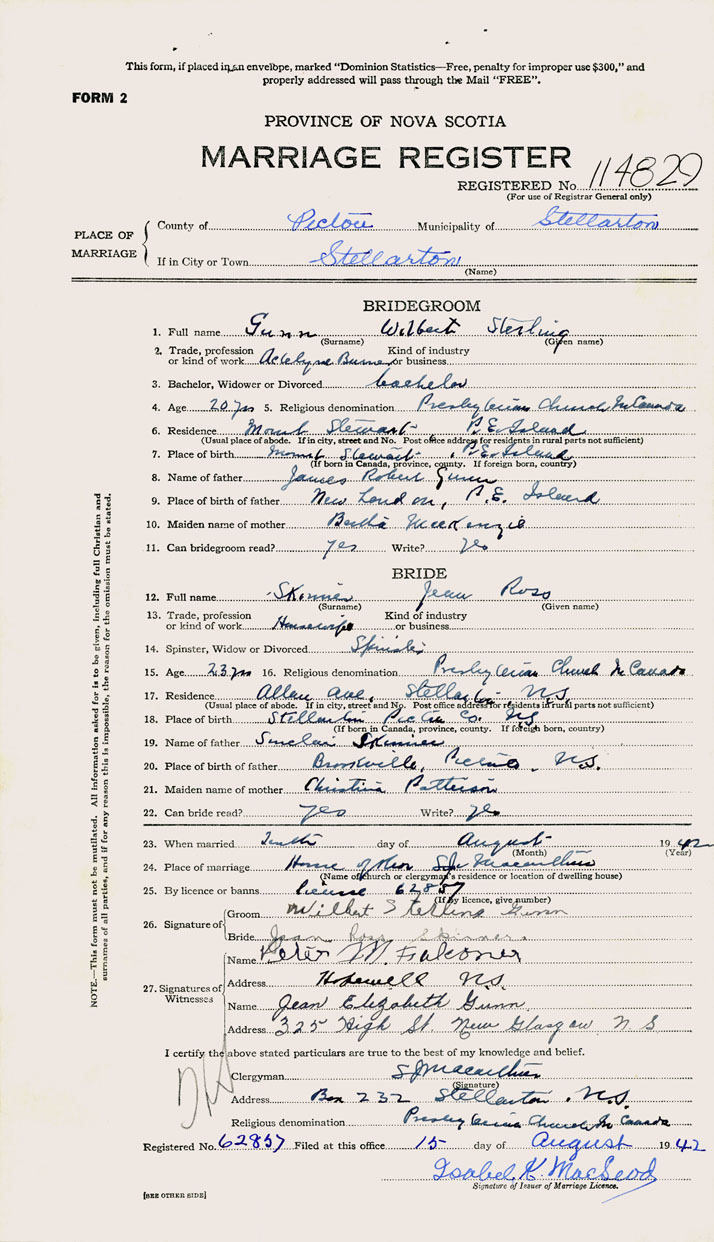 This form, if placed in an envelope, marked “Dominion Statistics—Free, penalty for improper use $300,” and
properly addressed will pass through the Mail “FREE”.
FORM 2
PROVINCE OF NOVA SCOTIA
MARRIAGE REGISTER
REGISTERED No. 114829
(For use of Registrar General only)
PLACE OF MARRIAGE
County of Pictou Municipality of Stellarton
If in City or Town Stellarton
(Name)
BRIDEGROOM
1. Full name Gunn Wilbert Sterling
(Surname) (Given name)
2. Trade, profession or kind of work Burner Kind of industry or business
3. Bachelor, Widower or Divorced bachelor
4. Age 20 yrs 5. Religious denomination Presbyterian Church In Canada
6. Residence Mount Stewart P.E. Island
(Usual place of abode. If in city, street and No. Post office address for residents in rural parts not sufficient)
7. Place of birth Mount Stewart, P.E. Island
(If born in Canada, province, county. If foreign born, country)
8. Name of father James Robert Gunn
9. Place of birth of father New London, P.E. Island
10. Maiden name of mother Bertha MacKenzie
11. Can bridegroom read? yes Write? yes
BRIDE
12. Full name Skinner Jean Ross
(Surname) (Given name)
13. Trade, profession or kind of work Housewife Kind of industry or business
14. Spinster, Widow or Divorced Spinster
15. Age 23 yrs 16. Religious denomination Presbyterian Church In Canada
17. Residence Allan Ave, Stellarton N.S.
(Usual place of abode. If in city, street and No. Post office address for residents in rural parts not sufficient)
18. Place of birth Stellarton Pictou Co. N.S.
(If born in Canada, province, county. If foreign born, country)
19. Name of father Sinclair Skinner
20. Place of birth of father Brookville, Pictou, N.S.
21. Maiden name of mother Christina Patterson
22. Can bride read? yes Write? yes
23. When married Tenth day of August 1942
(Month) (Year)
24. Place of marriage Home of Rev S.J. Macarthur
(Name of church or clergyman's residence or location of dwelling house)
25. By licence or banns license 62857
(If by licence, give number)
26. Signature of
Groom Wilbert Sterling Gunn
Bride Jean Ross Skinner
27. Signatures of Witnesses
Name Peter M. Falconer
Address Hopewell N.S.
Name Jean Elizabeth Gunn
Address 325 High St New Glasgow N S
I certify the above stated particulars are true to the best of my knowledge and belief.
Clergyman S J Macarthur
(Signature)
Address Box 232 Stellarton, N.S.
Religious denomination Presbyterian Church In Canada
Registered No. 62857 Filed at this office 15 day of August 1942
Isabel K. MacLeod
Signature of Issuer of Marriage Licence.
[SEE OTHER SIDE]
NOTE.—This form must not be mutilated. All information asked for is to be given, including full Christian and
surnames of all parties, and if for any reason this is impossible, the reason for the omission must be stated.